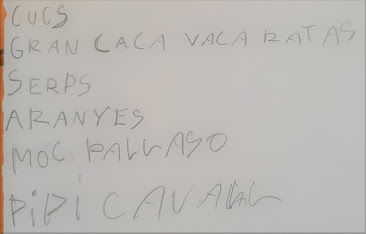 CUCS
GRAN CACA VACA RATAS
SERPS
ARANYES
MOC PALLASO
PIPI CAVALL